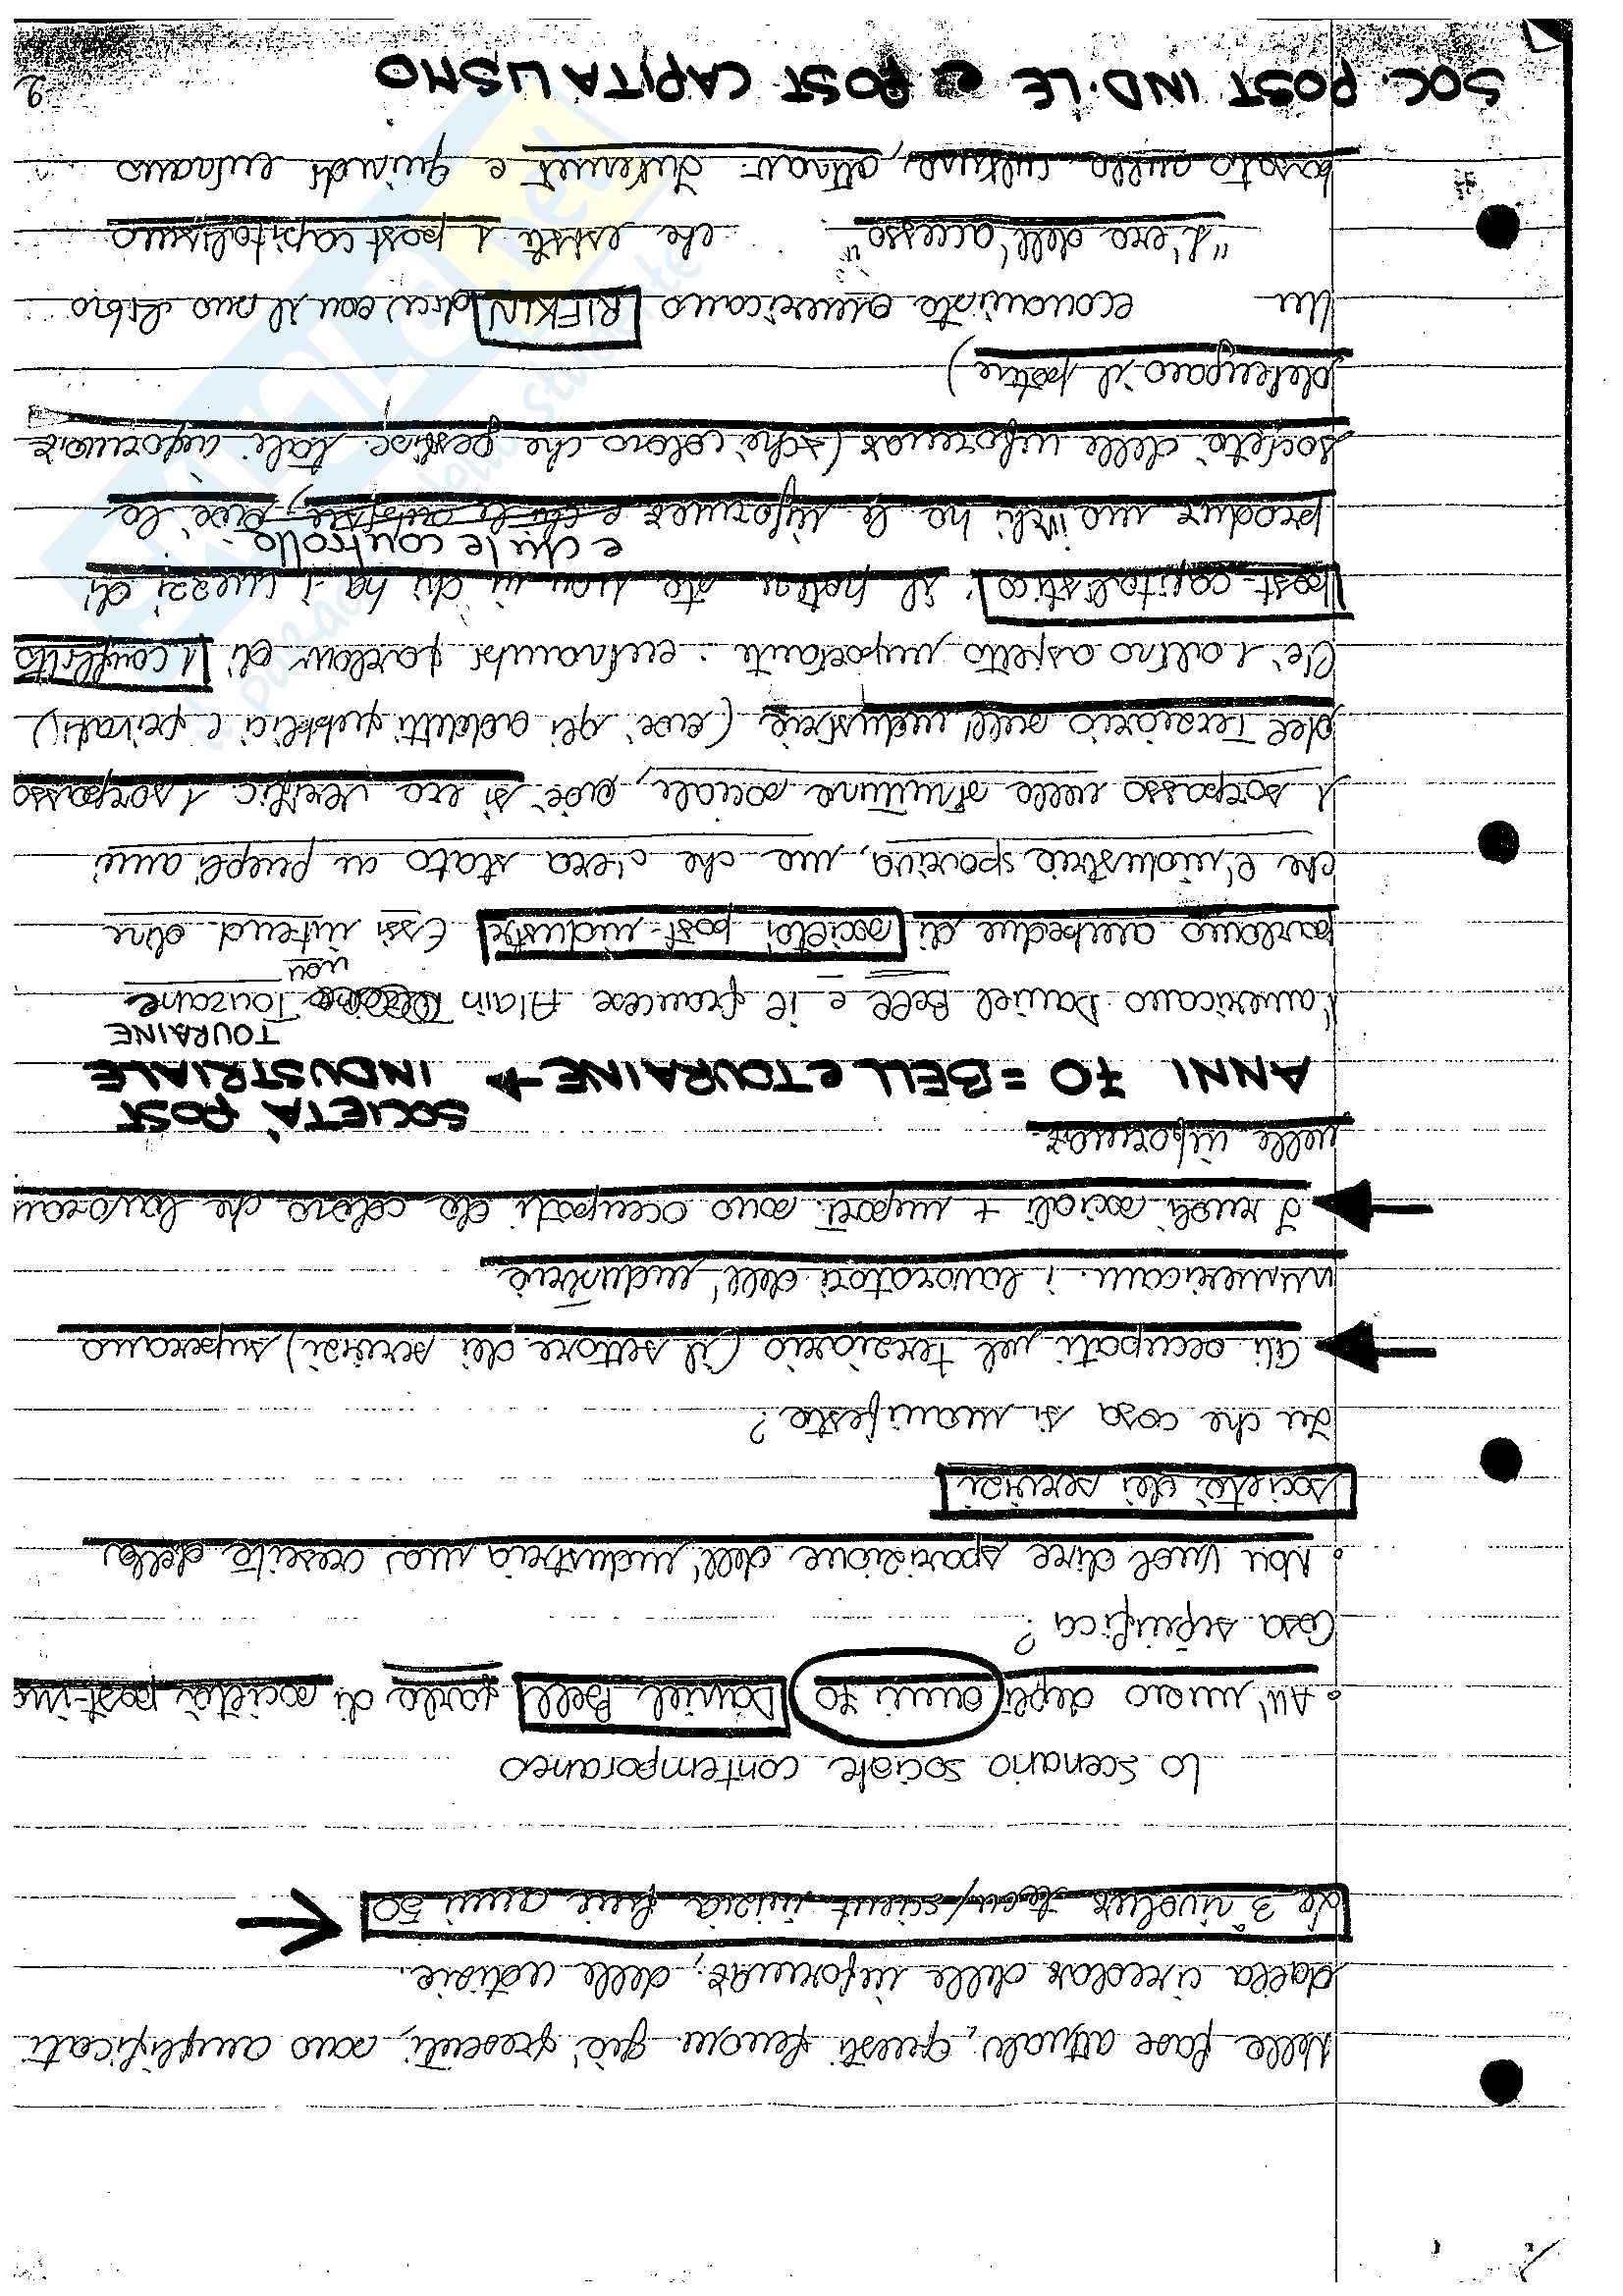 Nella fase attuale, questi fenom. già presenti, sono amplificati
dalla circolaz delle informaz, delle notizie.
La 3ª rivoluz tecn/scient inizia fine anni 50
Lo scenario sociale contemporaneo
• All'inizio degli anni 70 Daniel Bell parla di società post-ind
Cosa significa?
• Non vuol dire sparizione dell'industria ma crescita della
società dei servizi
In che cosa si manifesta?
→ Gli occupati nel terziario (il settore dei servizi) superano
numericam. i lavoratori dell'industria
→ I ruoli sociali + import. sono occupati da coloro che lavoran
nelle informaz.
SOCIETÀ POST
ANNI 70 = BELL e TOURAINE → INDUSTRIALE
TOURAINE
l'americano Daniel Bell e il francese Alain Touraine
parlano ambedue di società post-industr. Essi non intend dire
che l'industria spariva, ma che c'era stato in quegli anni
1 sorpasso nella struttura sociale, cioè si era verific 1 sorpasso
del Terziario sull'industria (cioè gli addetti pubblici e privati)
C'è 1 altro aspetto importante: entrambi parlano di 1 conflitto
post-capitalistico: il potere sta non in chi ha i mezzi di
e chi le controlla
produz ma in chi ha le informaz cioè la
società delle informaz (xchè coloro che gestisc. tali informaz
detengono il potere)
Un economista americano RIFKIN dice con il suo libro
"L'era dell'accesso" che esiste 1 post capitalismo
basato sulla cultura, e quindi entrano
SOC. POST IND.LE e POST CAPITALISMO
2